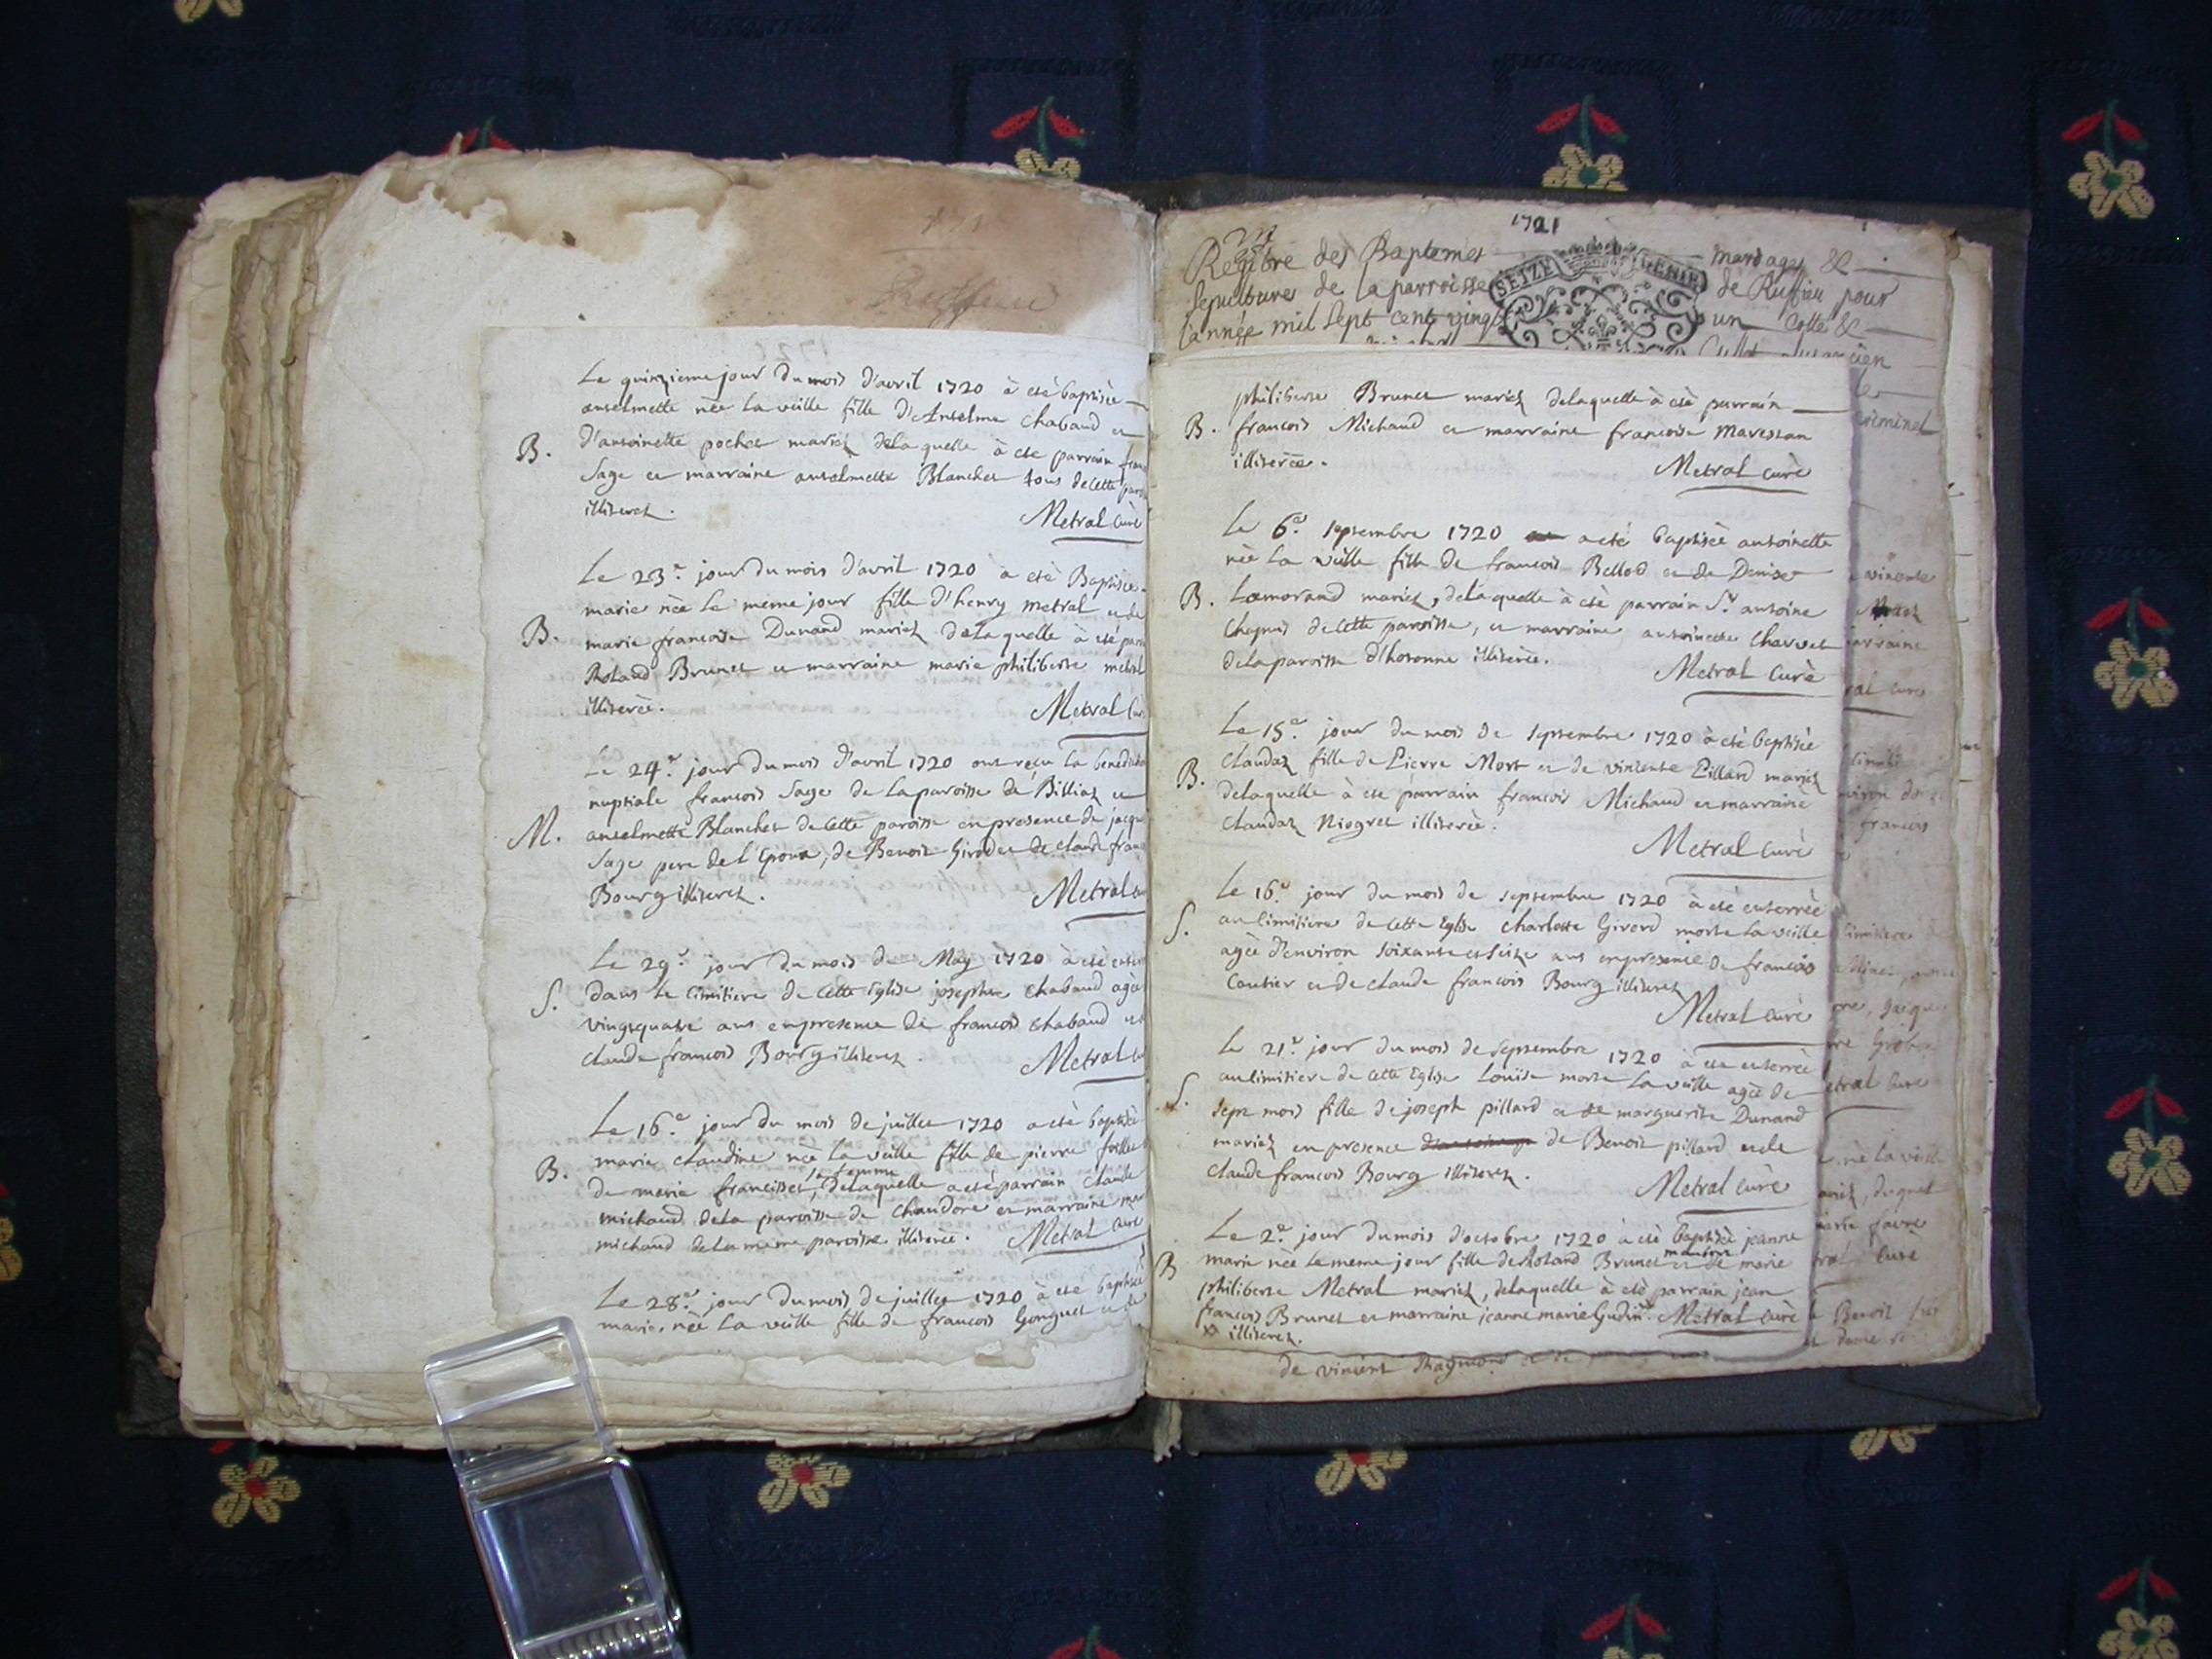 Le quinzieme jour du mois d'avril 1720 à eté baptisée
anselmette née la veille fille d'Anselme Chabaud et
B. d'antoinette pochet mariez de laquelle à eté parrain
Sage et marraine anselmette Blanchet tous de cette
illiterez.
Metral Curé
Le 23.e jour du mois d'avril 1720 à eté Baptisée
marie née le meme jour fille d'henry metral et de
B. marie francoise Dunand mariez de la quelle à eté
Roland Brunet et marraine marie philiberte metral
illiterée.
Metral
Le 24.e jour du mois d'avril 1720 ont reçu la
nuptiale francois Sage de la paroisse de Billiaz et
M. anselmette Blanchet de cette paroisse en presence de
Sage pere de l'Epoux, de Benoit Girod et de claude
Bourg illiterez.
Metral
Le 29.e jour du mois de May 1720 à eté
S. dans le cimitiere de cette Eglise josephte Chabaud
vingtquatre ans en presence de francois chabaud et
claude francois Bourg illiterez.
Metral
Le 16.e jour du mois de juillet 1720 a eté baptisée
marie claudine née la veille fille de pierre
sa femme
B. de marie francisset, de laquelle a eté parrain claude
michaud de la paroisse de Chandore et marraine
michaud de la meme paroisse illiterée. Metral Curé
Le 28.e jour du mois de juillet 1720 à eté baptisée
marie, née la veille fille de francois Gonguet et de
1721
Regitre des Baptemes mariages &
Sepulture de la parroisse de Ruffieu pour
SEIZE
l'année mil sept cent vingt un cotté &
criminel
philiberte Brunet mariez de laquelle à eté parrain
B. francois Michaud et marraine francoise
illiterée.
Metral curé
Le 6.e septembre 1720 a eté baptisée antoinette
née la veille fille de francois Bellod et de Denise
B. Lamorand mariez, de laquelle à eté parrain S.r antoine
de cette paroisse, et marraine antoinette Charvet
de la paroisse d'hotonne illiterée.
Metral Curé
Le 15.e jour du mois de septembre 1720 à eté baptisée
B. Claudaz fille de Pierre Mort et de vincente Pillard mariez
de laquelle à eté parrain francois Michaud et marraine
Claudaz Niogret illiterée.
Metral curé
Le 16.e jour du mois de septembre 1720 à eté enterrée
S. au cimitiere de cette Eglise charlotte Girord morte la veille
agée d'environ soixante et seize ans en presence de francois
Cautier et de claude francois Bourg illiterez
Metral curé
Le 21.e jour du mois de septembre 1720 à eté enterrée
au cimitiere de cette Eglise Louise morte la veille agée de
S. sept mois fille de joseph pillard et de marguerite Dunand
mariez en presence de Benoit pillard et de
claude francois Bourg illiterez.
Metral curé
Le 2.e jour du mois d'octobre 1720 à eté baptisée jeanne
B marie née le meme jour fille de Roland Brunet et de marie
philiberte Metral mariez, de laquelle à eté parrain jean
francois Brunet et marraine jeanne marie Gudin. Metral curé
illiterez.
de vincent